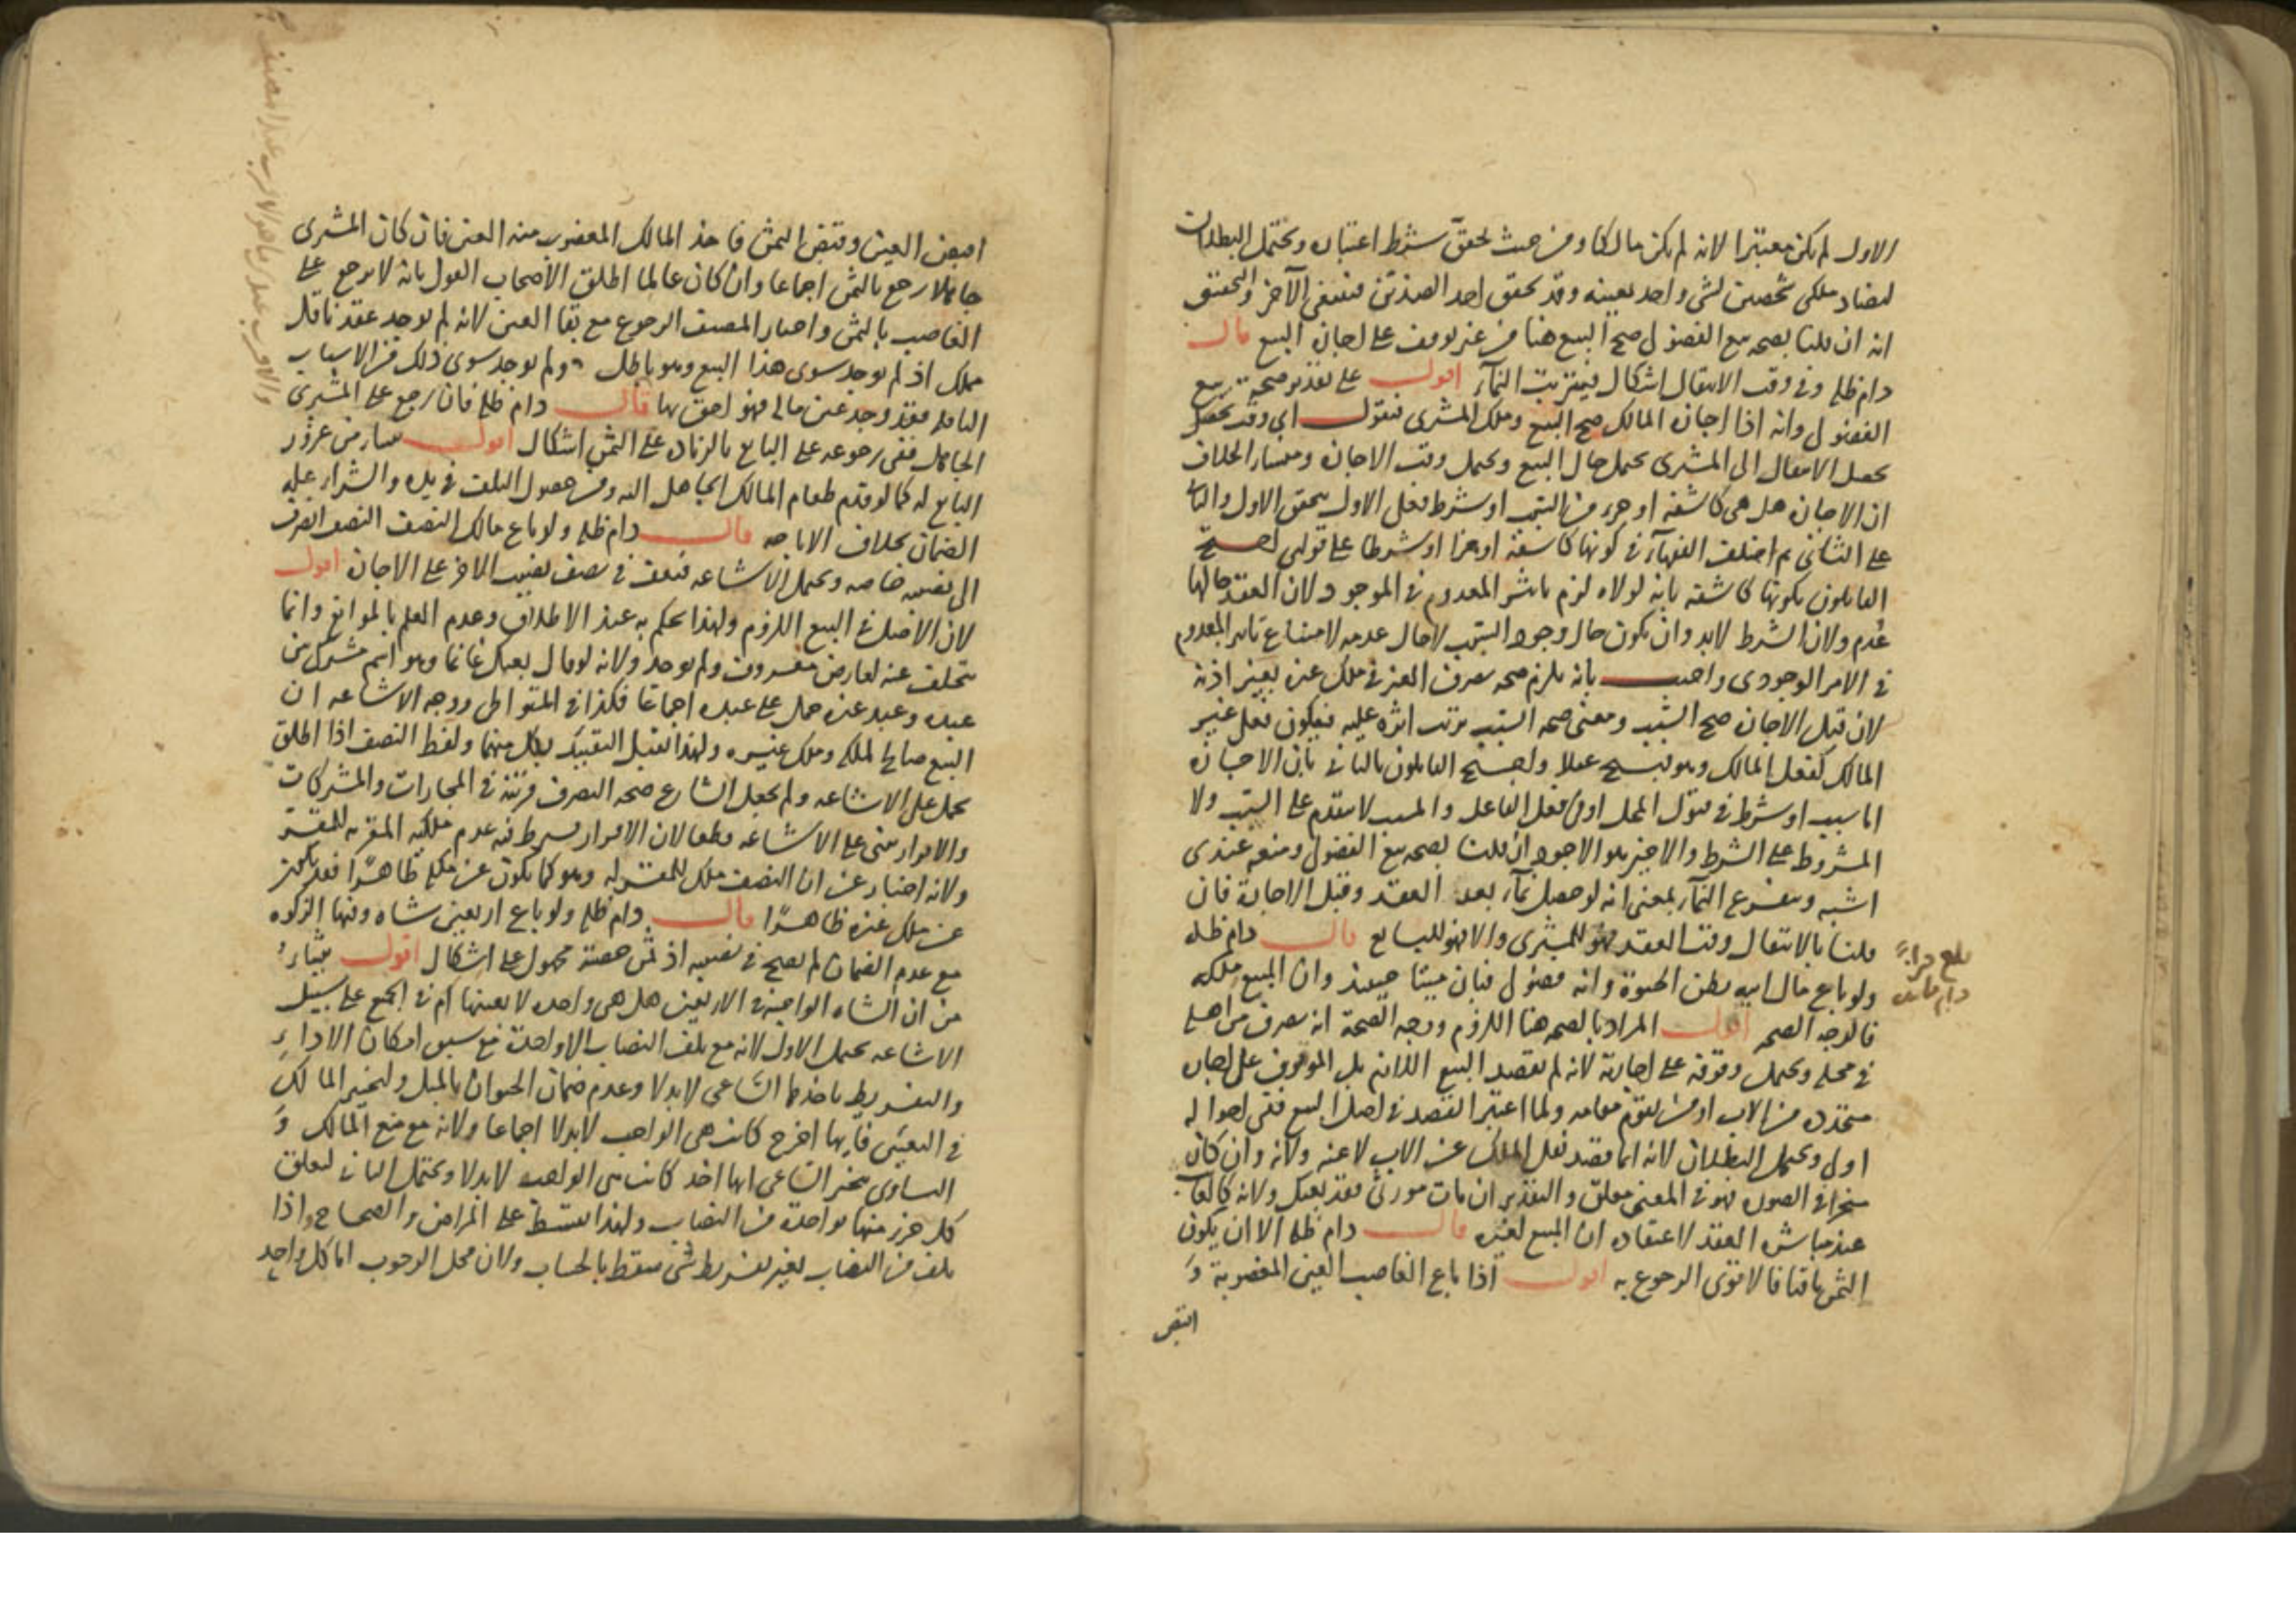 الاول لم يكن معتبرا لانه لم يكن مالكا ومن حيث تحقق شرط اعتباره ويحتمل البطلان
لتضاد ملكى شخصين لشى واحد بعينه وقد تحقق احد الضدين فينتفى الآخر والتحقيق
انه ان قلنا بصحه بيع الفضول صح البيع هنا من غير توقف على اجازة البيع قال
دام ظله وفى وقت الانتقال اشكال فيترتب النمآء اقول على تقدير صحة بيع
الفضول وانه اذا اجازه المالك صح البيع وملك المشترى فنقول اى وقت يحصل
يحصل الانتقال الى المشترى يحتمل حال البيع ويحتمل وقت الاجازه ومنشأ الخلاف
ان الاجازه هل هى كاشفة او جزء من السبب او شرط فعلى الاول يتحقق الاول والثانى
على الثانى ثم اختلف الفقهآء فى كونها كاشفة او جزا او شرطا على قولين احتج
القايلون بكونها كاشفة بانه لولاه لزم تاثير المعدوم فى الموجود لان العقد حالها
عُدم ولان الشرط لابد وان يكون حال وجود السبب لا حال عدمه لامتناع تاثير المعدوم
فى الامر الوجودى واجيب بانه يلزم صحه تصرف الغير فى ملك غيره بغير اذنه
لان قبل الاجازه صح السبب ومعنى صحه السبب ترتب اثره عليه فيكون فعل غير
المالك كفعل المالك وهو قبيح عقلا واحتج القايلون بالثانى بان الاجازة
اما سبب او شرط فى قبول المحل او فى فعل الفاعل والمسبب لا يتقدم على السبب ولا
المشروط على الشرط والاخير هو الاجود ان قلنا بصحه بيع الفضول ومنعه عندى
اشبه ويتفرع النمآء بمعنى انه لو حصل نمآء بعد العقد وقبل الاجازة فان
قلنا بالانتقال وقت العقد فهو للمشترى والا فهو للبايع قال دام ظله
ولو باع مال ابيه بظن الحيوة وانه فضول فبان ميتا حينئذ وان المبيع ملكه
فالوجه الصحه اقول المراد بالصحه هنا اللزوم ووجه الصحة انه تصرف من اهله
فى محله ويحتمل وقوفه على اجازته لانه لم يقصد البيع اللازم بل الموقوف على اجازه
متجدده من الاب او من يقوم مقامه ولما اعتبر القصد فى اصل البيع ففى احواله
اولى ويحتمل البطلان لانه انما قصد نقل الملك عن الاب لا عنه ولانه وان كان
منجزا فى الصوره فهو فى المعنى معلق والتقدير ان مات مورثى فقد بعتك ولانه كالعابث
عند مباشرة العقد لاعتقاده ان المبيع لغيره قال دام ظله الا ان يكون
الثمن باقيا فالاقوى الرجوع به اقول اذا باع الغاصب العين المغصوبة و
اقبض
بلغ قراءً
دام
اقبض العين وقبض الثمن فاخذ المالك المغصوب منه العين فان كان المشترى
جاهلا رجع بالثمن اجماعا وان كان عالما اطلق الاصحاب القول بانه لا يرجع على
الغاصب بالثمن واختار المصنف الرجوع مع بقا العين لانه لم يوجد عقد ناقل
مملك اذ لم يوجد سوى هذا البيع وهو باطل ولم يوجد سوى ذلك من الاسباب
الناقله فقد وجد عين ماله فهو احق بها قال دام ظله فان رجع على المشترى
الجاهل ففى رجوعه على البايع بالزياده على الثمن اشكال اقول ينشا من غرور
البايع له كما لو قدم طعام المالك الجاهل اليه ومن حصول التلف فى يده والشراء عليه
الضمان بخلاف الاباحه قال دام ظله ولو باع مالك النصف النصف انصرف
الى نصيبه خاصه ويحتمل الاشاعه فيقف فى نصف نصيب الاخر على الاجازه اقول
لان الاصل فى البيع اللزوم ولهذا يحكم به عند الاطلاق وعدم العلم بالموانع وانما
يتخلف عنه لعارض مفسد ولم يوجد ولانه لو قال بعتك غانما وهو اسم مشترك بين
عبده وعبد غيره حمل على عبده اجماعا فكذا فى المتواطى ووجه الاشاعه ان
البيع صالح لملكه وملك غيره ولهذا يقبل التقييد بكل منهما ولفظ النصف اذا اطلق
يحمل على الاشاعه ولم يجعل الشارع صحه التصرف قرينة فى المجازات والمشتركات
والاقرار مبنى على الاشاعه قطعا لان الاقرار يشترط فيه عدم ملكيه المقر به للمقر
ولانه اخبار عن ان النصف ملك للمقر له وهو كما يكون عن ملكه ظاهرًا فقد يكون
عن ملك غيره ظاهرًا قال دام ظله ولو باع اربعين شاه وفيها الزكوه
مع عدم الضمان لم يصح فى نصيبه اذ ثمن حصته مجهول على اشكال اقول ينشاء
من ان الشاه الواجبه فى الاربعين هل هى واحده لا بعينها ام فى الجميع على سبيل
الاشاعه يحتمل الاول لانه مع تلف النصاب الا واحدة مع سبق امكان الاداء
والتفريط ياخذها الساعى لا بدلا وعدم ضمان الحيوان بالمثل ولتخير المالك
فى التعيين فايها اخرج كانت هى الواجب لا بدلا اجماعا ولانه مع منع المالك و
التساوى يتخير الساعى ايها اخذ كانت هى الواجب لا بدلا ويحتمل الثانى لتعلق
كل جزء منها بواحدة من النصاب ولهذا يقسط على المراض والصحاح واذا
تلف من النصاب بغير تفريط شى سقط بالحساب ولان محل الوجوب اما كل واحد